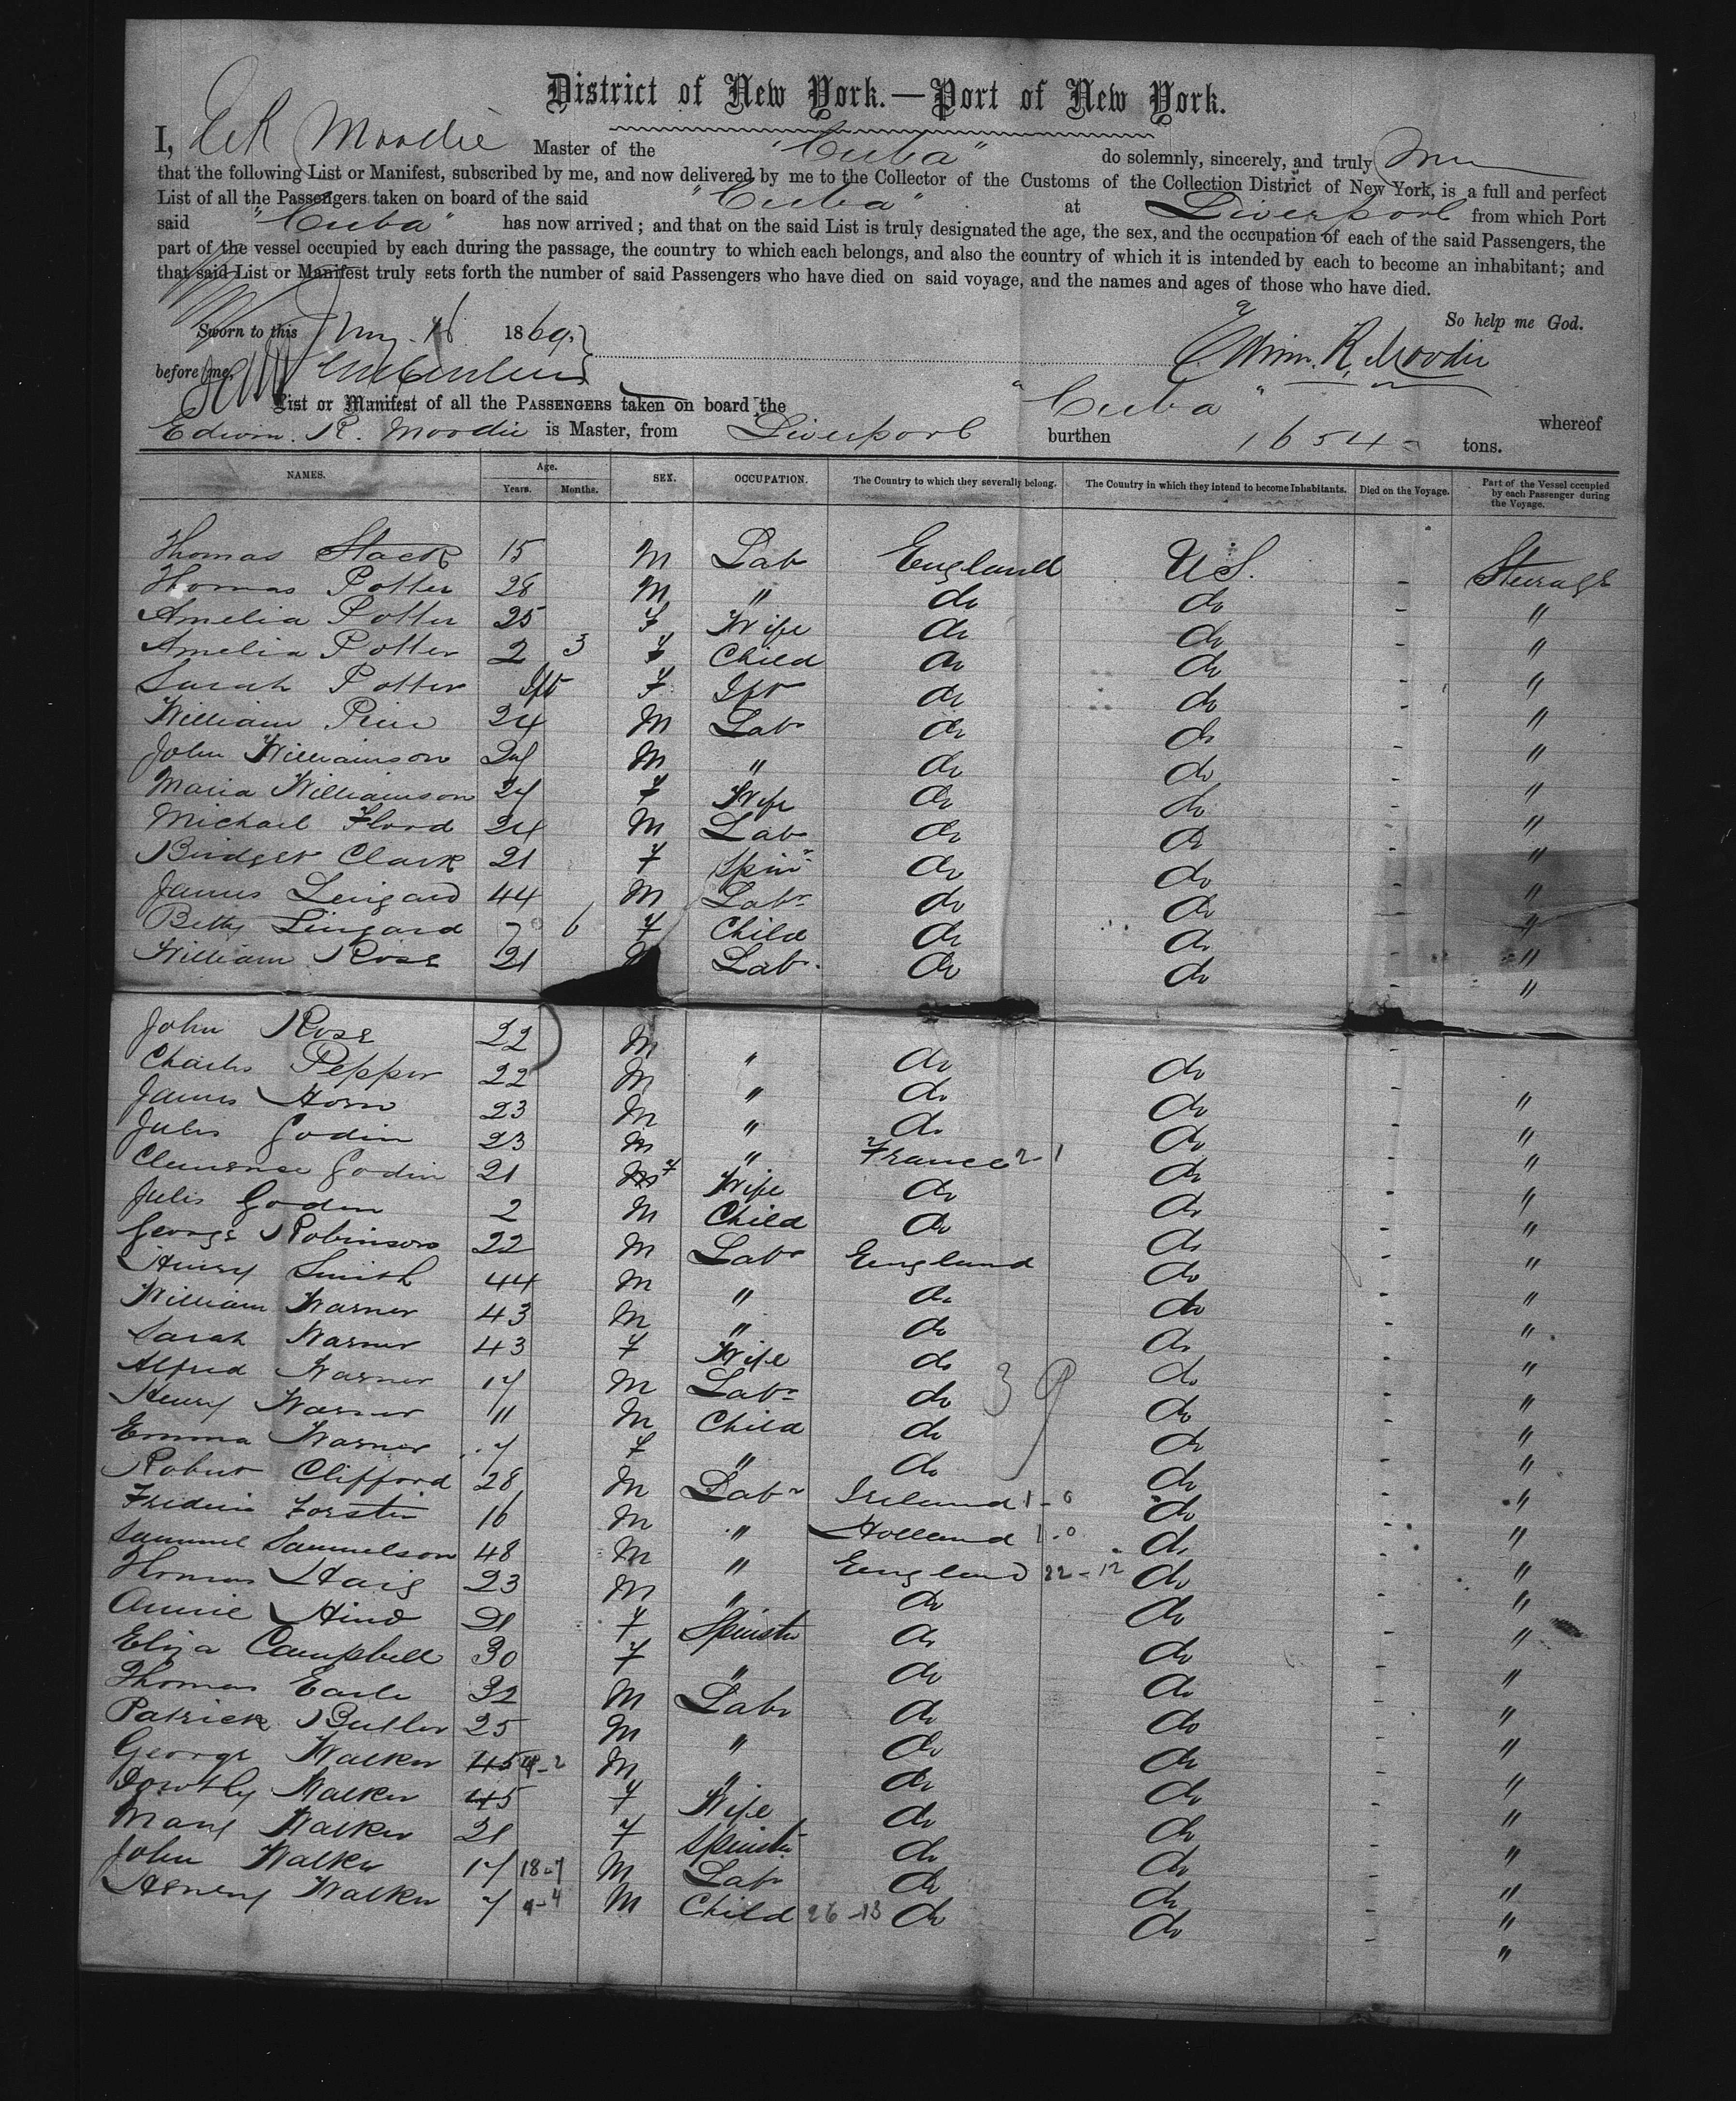 District of New York.—Port of New York.
I, E R Moodie Master of the "Cuba" do solemnly, sincerely, and truly
that the following List or Manifest, subscribed by me, and now delivered by me to the Collector of the Customs of the Collection District of New York, is a full and perfect
List of all the Passengers taken on board of the said "Cuba" at Liverpool from which Port
said "Cuba" has now arrived; and that on the said List is truly designated the age, the sex, and the occupation of each of the said Passengers, the
part of the vessel occupied by each during the passage, the country to which each belongs, and also the country of which it is intended by each to become an inhabitant; and
that said List or Manifest truly sets forth the number of said Passengers who have died on said voyage, and the names and ages of those who have died.
So help me God.
Sworn to this 1869.
before me, Edwin. R. Moodie
List or Manifest of all the PASSENGERS taken on board the "Cuba" whereof
Edwin. R. Moodie is Master, from Liverpool burthen 1654 tons.
NAMES. Age. Years. Months. SEX. OCCUPATION. The Country to which they severally belong. The Country in which they intend to become Inhabitants. Died on the Voyage. Part of the Vessel occupied by each Passenger during the Voyage.
Thomas Stack 15 M Lab England U S. - Steerage
Thomas Potter 28 M " do do - "
Amelia Potter 25 F Wife do do - "
Amelia Potter 2 3 F Child do do - "
Sarah Potter Ift F Ift do do - "
William 24 M Lab do do - "
John Williamson 24 M " do do - "
Maria Williamson 24 F Wife do do - "
Michael Flood 24 M Lab do do - "
Bridget Clark 21 F Spinr do do - "
James Lingard 44 M Labr do do - "
Betty Lingard 7 6 F Child do do - "
William Rose 21 Lab. do do - "
John Rose 22 M " do do - "
Charles Pepper 22 M " do do - "
James Horn 23 M " do do - "
Jules Godin 23 M " France 2-1 do - "
Clemense Godin 21 F Wife do do - "
Jules Godin 2 M Child do do - "
George Robinson 22 M Labr England do - "
Henry Smith 44 M " do do - "
William Warner 43 M " do do - "
Sarah Warner 43 F Wife do do - "
Alfred Warner 17 M Labr do do - "
Henry Warner 11 M Child do 39 do - "
Emma Warner 7 F " do do - "
Robert Clifford 28 M Labr Ireland 1-0 do - "
16 M " Holland 1-0 do - "
Samuel Samuelson 48 M " England 22-12 do - "
Thomas Haig 23 M " do do - "
Annie Hind 21 F Spinster do do - "
Eliza Campbell 30 F " do do - "
Thomas Earle 32 M Labr do do - "
Patrick Butler 25 M " do do - "
George Walker 45 4-2 M " do do - "
Dorothy Walker 45 F Wife do do - "
Mary Walker 21 F Spinster do do - "
John Walker 17 18-7 M Labr do do - "
Henry Walker 7 4-4 M Child 26-13 do do - "